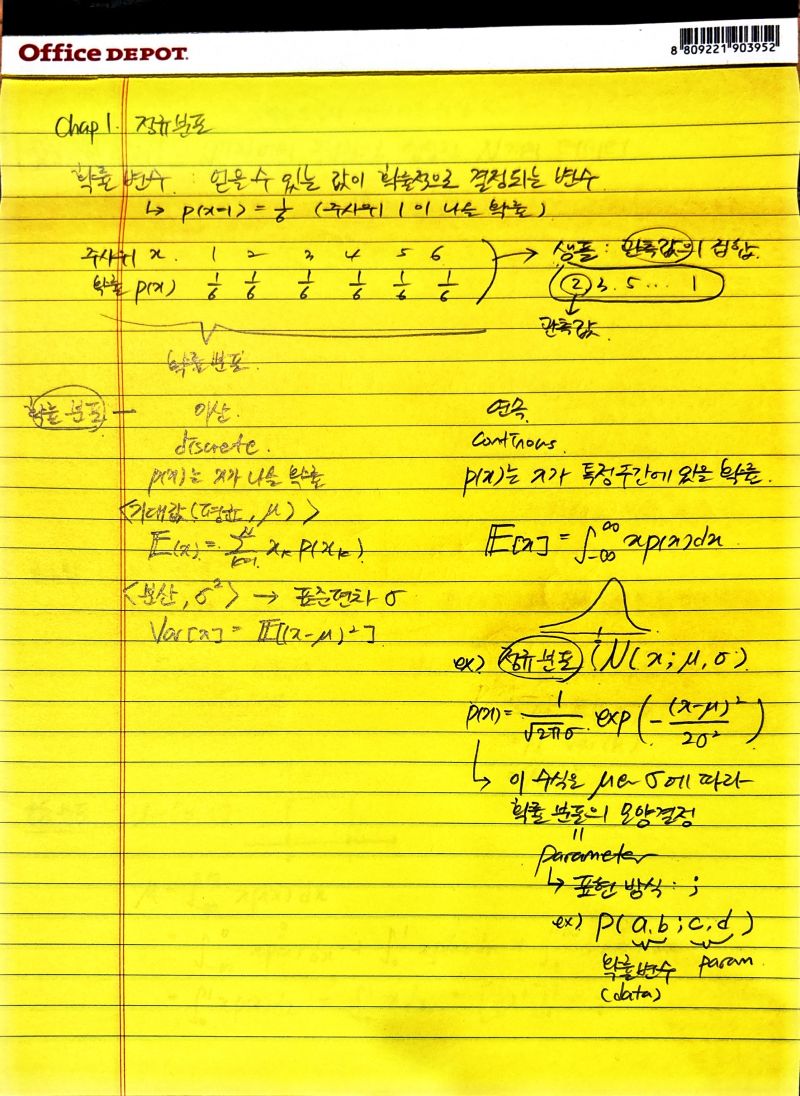 Office DEPOT.
8 809221 903952
Chap 1. 정규분포
확률 변수 : 얻을 수 있는 값이 확률적으로 결정되는 변수
↳ p(x=1) = 1/6 (주사위 1이 나올 확률)
주사위 x. 1 2 3 4 5 6 → 샘플 : 관측값의 집합
확률 p(x) 1/6 1/6 1/6 1/6 1/6 1/6 ② 3. 5 ... 1
관측값
확률 분포.
확률 분포 — 이산. 연속
discrete. continous
p(x)는 x가 나올 확률 p(x)는 x가 특정구간에 있을 확률.
<기대값(평균, μ)>
𝔼(x) = Σ x_k p(x_k) 𝔼[x] = ∫_{-∞}^{∞} xp(x)dx
<분산, σ²> → 표준편차 σ
Var[x] = 𝔼[(x-μ)²]
ex) 정규분포 (N(x; μ, σ)
p(x) = 1/√2πσ exp(-(x-μ)²/2σ²)
↳ 이 수식은 μ와 σ에 따라
확률 분포의 모양결정
=
parameter
↳ 표현 방식 : ;
ex) P(a,b ; c,d)
확률변수 param.
(data)